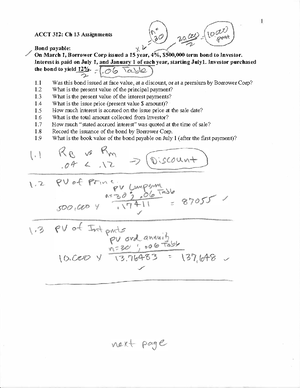 1
ACCT 322: Ch 13 Assignments
n=30
20,000/2 = 10,000
pmt
Bond payable:
On March 1, Borrower Corp issued a 15 year, 4%, $500,000 term bond to Investor.
Interest is paid on July 1, and January 1 of each year, starting July1. Investor purchased
the bond to yield 12%. = .06 Table
1.1 Was this bond issued at face value, at a discount, or at a premium by Borrower Corp?
1.2 What is the present value of the principal payment?
1.3 What is the present value of the interest payments?
1.4 What is the issue price (present value $ amount)?
1.5 How much interest is accrued on the issue price at the sale date?
1.6 What is the total amount collected from investor?
1.7 How much "stated accrued interest" was quoted at the time of sale?
1.8 Record the issuance of the bond by Borrower Corp.
1.9 What is the book value of the bond payable on July 1 (after the first payment)?
1.1 RB vs Rm
.04 < .12 → Discount
1.2 PV of Princ
PV Lumpsum
n=30 ; .06 Table
500,000 x .17411 = 87055 ✓
1.3 PV of Int pmts
PV ord annuity
n=30 ; .06 Table
10,000 x 13.76483 = 137,648 ✓
next page